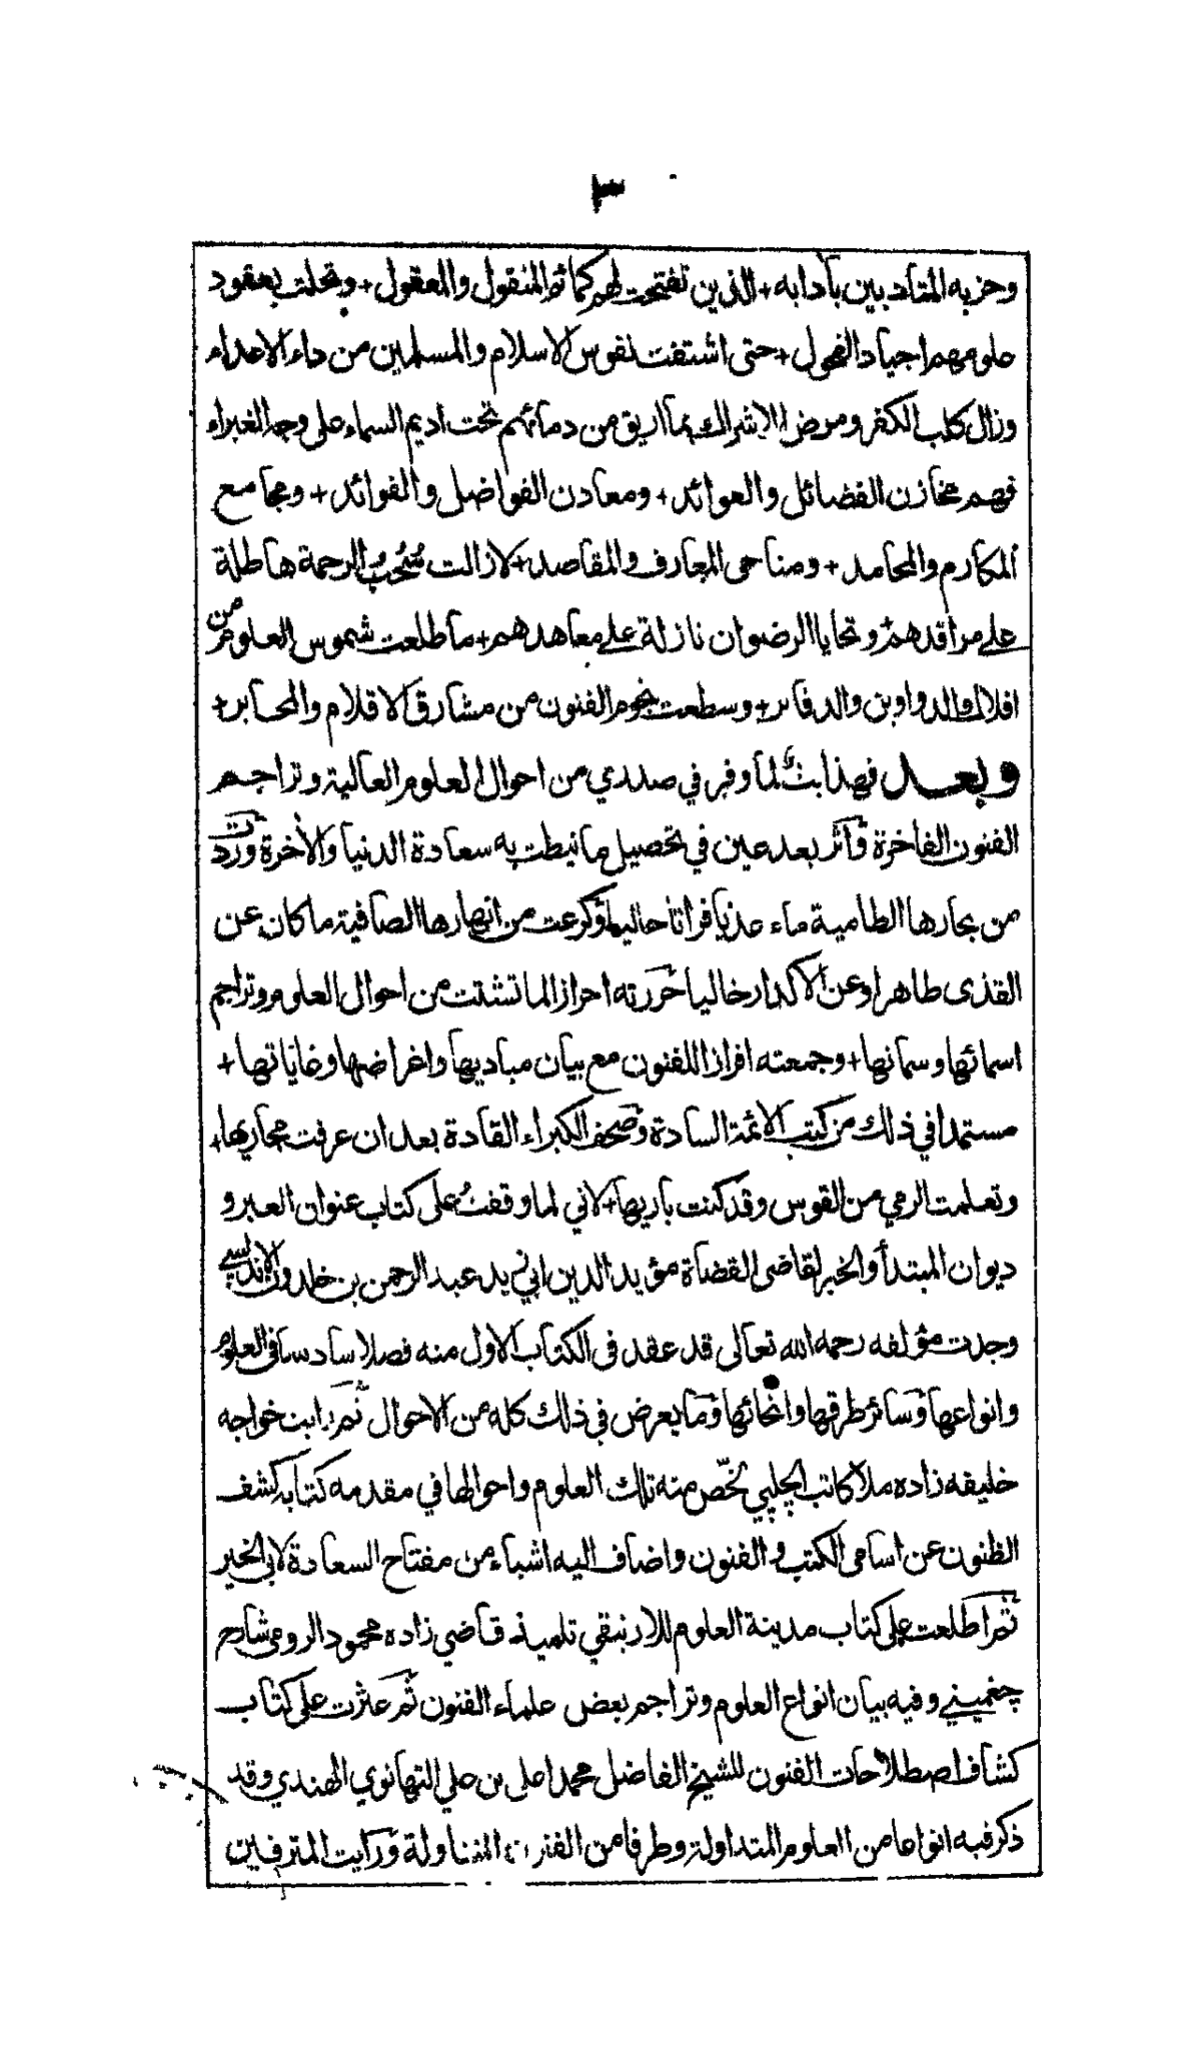 ٣
وحزبه المتأدبين بآدابه + الذين تفتحت لهم كمائم المنقول والمعقول + وتحلت بعقود
علومهم اجياد الفحول + حتى اشتفت نفوس الاسلام والمسلمين من داء الاعداء
وزال كلب الكفر ومرض الاشراك بما اريق من دمائهم تحت اديم السماء على وجه الغبراء
فهم مخازن الفضائل والعوائد + ومعادن الفواضل والفوائد + ومجامع
المكارم والمحامد + ومناحى المعارف والمقاصد + لازالت سُحُبُ الرحمة هاطلة
على مراقدهم + وتحايا الرضوان نازلة على معاهدهم + ما طلعت شموس العلوم من
افلاك الدواوين والدفاتر + وسطعت نجوم الفنون من مشارق الاقلام والمحابر +
وبعد فهذا بثٌ لما وفر في صدري من احوال العلوم العالية وتراجم
الفنون الفاخرة وآثر بعد عين في تحصيل ما نيطت به سعادة الدنيا والأخرة وردت
من بحارها الطامية ماء عذبا فراتا حاليا وكرعت من انهارها الصافية ما كان عن
القذى طاهرا وعن الاكدار خاليا حررته احراز الما تشتت من احوال العلوم وتراجم
اسمائها وسماتها + وجمعته افرازا للفنون مع بيان مباديها واغراضها وغاياتها +
مستمدا في ذلك من كتب الائمة السادة وصحف الكبراء القادة بعد ان عرفت مجاريها +
وتعلمت الرمي من القوس وقد كنت باريها + لاني لما وقفتُ على كتاب عنوان العبر و
ديوان المبتدأ والخبر لقاضى القضاة مؤيد الدين ابي زيد عبد الرحمن بن خلدون الاندلسي
وجدت مؤلفه رحمه الله تعالى قد عقد فى الكتاب الاول منه فصلا سادسا فى العلوم
وانواعها وسائر طرقها وانحائها وما يعرض في ذلك كله من الاحوال ثم رايت خواجه
خليفه زاده ملا كاتب الچلپي لخّص منه تلك العلوم واحوالها في مقدمه كتابه كشف
الظنون عن اسامى الكتب والفنون واضاف اليه اشياء من مفتاح السعادة لابى الخير
ثم اطلعت على كتاب مدينة العلوم للارنيقي تلميذ قاضي زاده محمود الرومى شارح
چغميني وفيه بيان انواع العلوم وتراجم بعض علماء الفنون ثم عثرت على كتاب
كشاف اصطلاحات الفنون للشيخ الفاضل محمد اعلى بن علي التهانوي الهندي وقد
ذكر فيه انواعا من العلوم المتداولة وطرفا من الفنون المتناولة ورايت المترفين